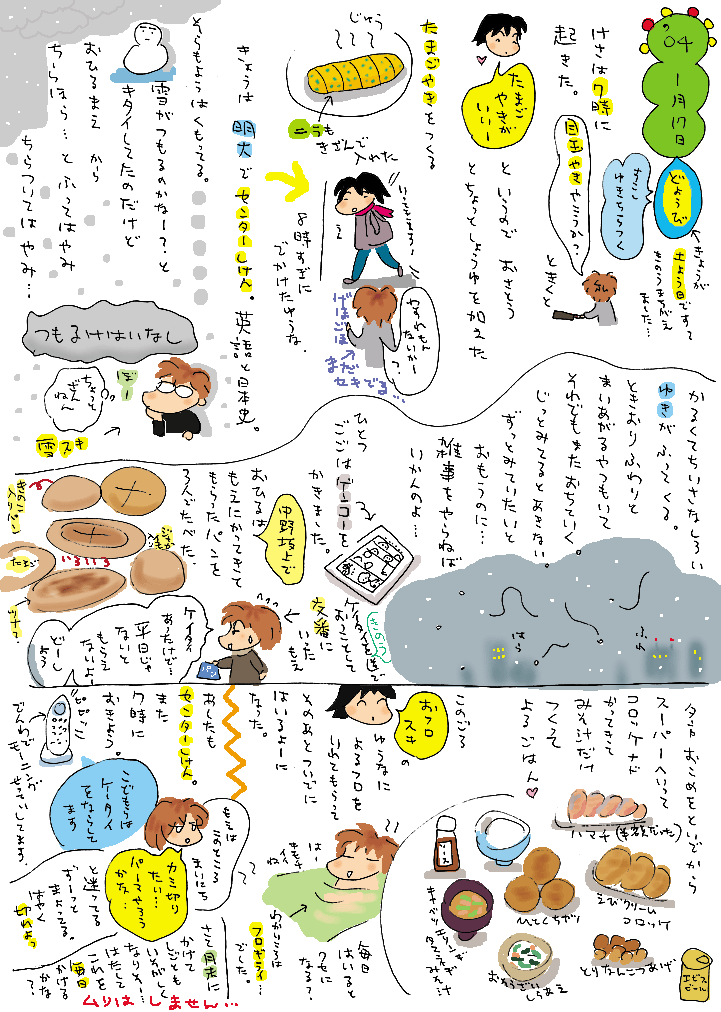 '04
1月17日
どようび
すこし
ゆきちらつく
←きょうが
土よう日ですって
きのうまちがえ
ました…
けさは7時に
起きた。
目玉やきやこうか?
ときくと
たまご
やきが
いいー
というので おさとう
とちょっとしょうゆを加えた
たまごやきをつくる
じゅう
ニラも
きざんで
入れた
いってきまーす
8時すぎに
でかけたゆうな。
やすれもん
ないかー?
げほごほ
まだ
セキでる…
きょうは 明大で センターしけん。英語と日本史。
そらもようはくもってる。
雪がつもるのかなー?と
キタイしてたのだけど
おひるまえ から
ちらほら…と ふってはやみ
ちらついてはやみ…
つもるけはいなし
ちょっと
ざんねん
ぼー
雪スキ
かるくてちいさなしろい
ゆきが ふってくる。
ときおりふわりと
まいあがるやつもいて
それでもまたおちていく。
じっとみてるとあきない。
ずっとみていたいと
おもうのに…
雑事をやらねば
いかんのよ…
ふわ
はら
ひとつ
ごごはゲーコーを
かきました。
中野坂上で
おひるは
もえにかってきて
もらったパンを
3人でたべた。
きのこ
入りパン
たまご
いろいろ
ツナ?
きのう
ケイタイを道で
おっことして
交番に
いた
もえ
ケイタイ
あったけど…
平日じゃ
ないと
もらえ
ないよー
どーし
よう
パン
夕方 おこめをといでから
スーパーへいって
コロッケなど
かってきて
みそ汁だけ
つくって
よるごはん♡
ハマチ(半額だった)
ソース
ひとくちカツ
えびクリーム
コロッケ
キャベツエリンギ
タマネギ
みそ汁
おとうふ
しらあえ
とりなんこつあげ
エビス
ビール
このごろ
おフロ
スキ
の
ゆうなに
よるフロを
いれてもらって
そのあとついでに
はいるよーに
なった。
はー
きもち
いいね
わかいころは
フロギライ…
でした。
毎日
はいると
クセに
なる?
あしたも
センターしけん。
また
7時に
おきよう。
ピピピッ
でんわで
モーニング
せっていしてます。
こどもらは
ケータイ
をならして
ます
もえは
このところ
まいにち
カミ切り
たい…
パーマやろう
かな…
と迷ってる
ずーっと
まよってる。
はやく
切れよっ
さて月末に
かけて
しごとも
いそがしく
なりそー…
はたして
これを
毎日
かける
かな
?
ムリはしません…